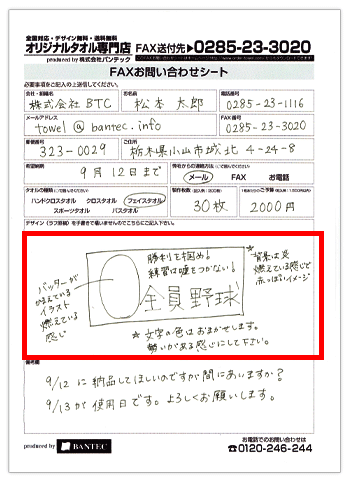 全国対応・デザイン無料・送料無料
オリジナルタオル専門店 FAX送付先▶0285-23-3020
produced by 株式会社バンテック
FAXお問い合わせシート
必要事項をご記入の上送信してください。
会社・部署名 お名前 電話番号
株式会社 BTC 松本 太郎 0285-23-1116
メールアドレス FAX番号
towel@bantec.info 0285-23-3020
郵便番号 ご住所
323-0029 栃木県小山市城北 4-24-8
希望納期
9月12日まで メール FAX お電話
ハンドクロスタオル クロスタオル フェイスタオル
スポーツタオル バスタオル
30枚 2000円
デザイン(ラフ原稿)を手書きで構いませんのでこちらにご記入下さい。
勝利を掴め!
練習は嘘をつかない!
全員野球
バッターが
かまえている
イラスト
燃えている
感じ
*背景は炎
燃えている感じで
赤っぽいイメージ
*文字の色はおまかせします。
勢いがある感じにして下さい。
備考欄
9/12に納品してほしいのですが間にあいますか?
9/13が使用日です。よろしくお願いします。
お電話でのお問い合わせは
produced by BANTEC ☎0120-246-244